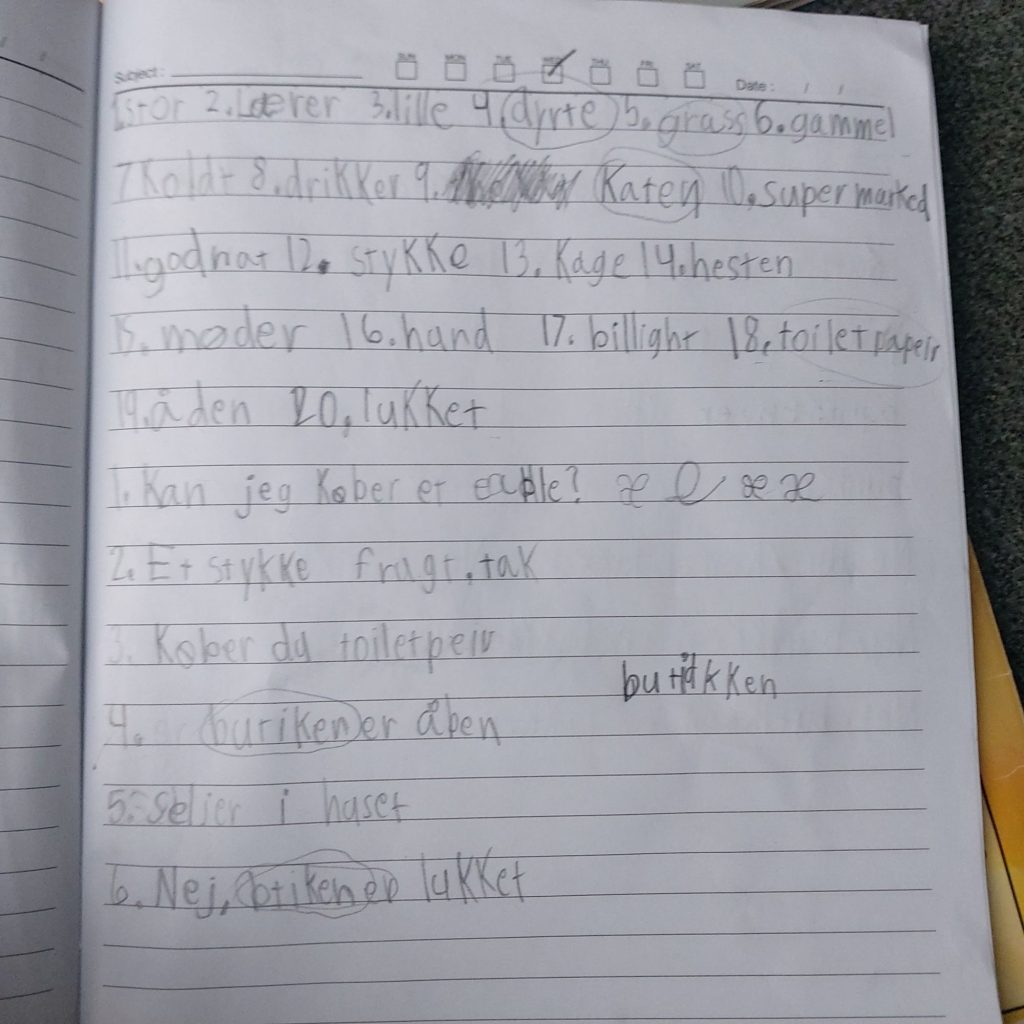 Subject: Date: / /
1.stor 2.Lærer 3.lille 4.dyrte 5.grass 6.gammel
7.Koldt 8.drikker 9. Katen 10.supermarked
11.godnat 12. stykke 13. Kage 14.hesten
15.moder 16.hand 17. billight 18.toiletpapeir
19.åden 20.lukket
1. Kan jeg Kober et eable? æ æ æ
2. Et stykke frugt, tak
3. Kober du toiletpeiv
butikken
4. butiken er åben
5. Seljer i huset
6. Nej, btiken er lukket